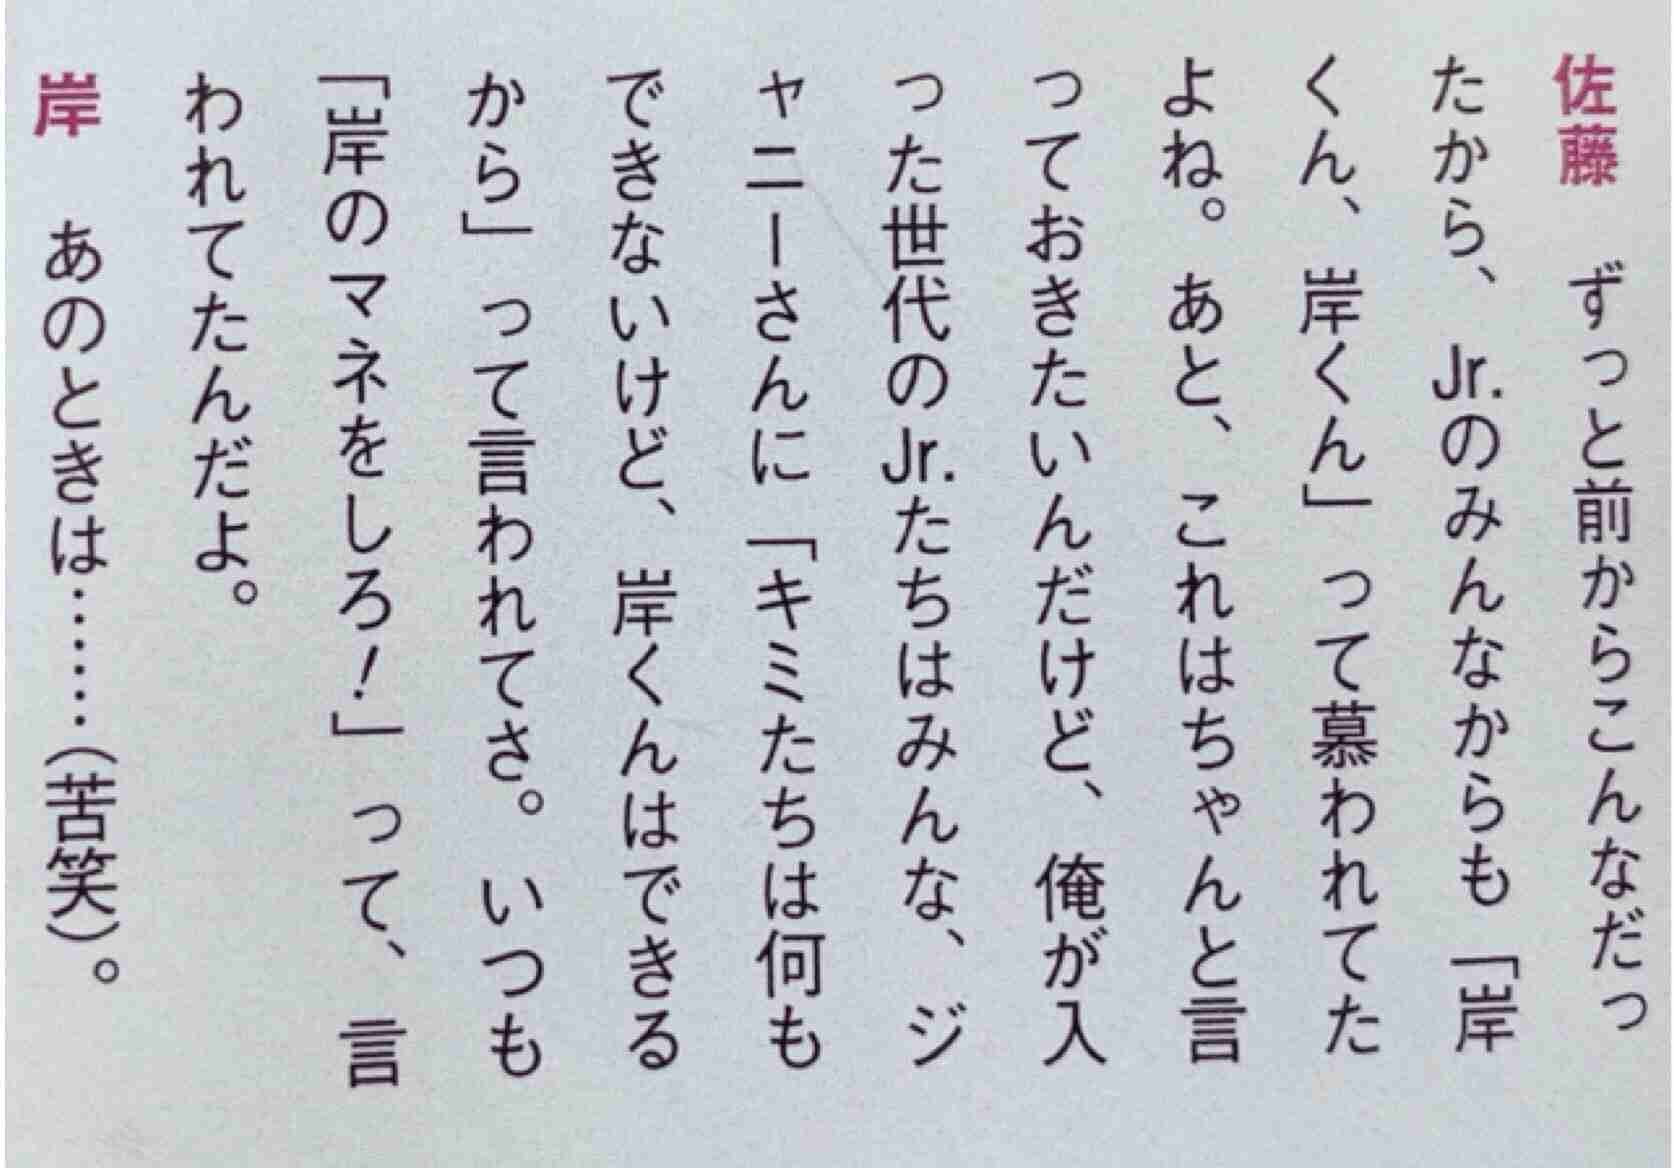 佐藤　ずっと前からこんなだっ
たから、Jr.のみんなからも「岸
くん、岸くん」って慕われてた
よね。あと、これはちゃんと言
っておきたいんだけど、俺が入
った世代のJr.たちはみんな、ジ
ャニーさんに「キミたちは何も
できないけど、岸くんはできる
から」って言われてさ。いつも
「岸のマネをしろ！」って、言
われてたんだよ。
岸　あのときは……（苦笑）。